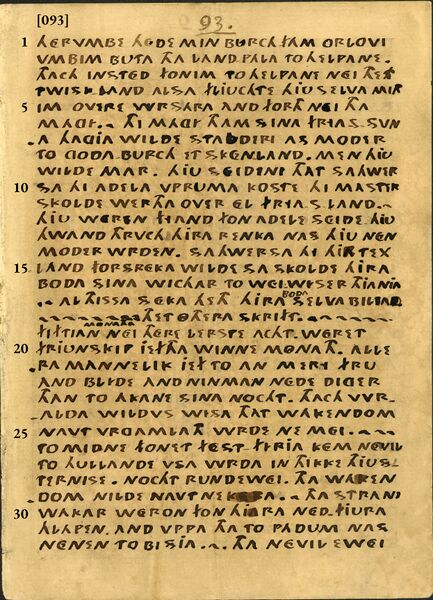 [093]
93.
1 HERVMBE HEDE MIN BURCH FAM ORLOVI
VMBIM BUTA THA LAND PALA TO HELPANE.
THACH INSTED FONIM TO HELPANE NEI THET
TWISKLAND ALSA FLIUCHTE HIU SELVA MIR
5 IM OVERE WRSARA AND FORTH NEI THA
MAGI. THI MAGI THAM SINA FRIAS SUN
A HAGIA WILDE STALDIRI AS MODER
TO GODA BURCH ET SKENLAND. MEN HIU
WILDE MAR. HIU SEIDENI THAT SAHWER
10 SA HI ADELA VPRUMA KOSTE HI MASTER
SKOLDE WERTHA OVER EL FRIAS LAND.
HIU WEREN FIAND FON ADELE SEIDE HIU
HWAND THRUCH HIRA RENKA NAS HIU NEN
MODER WRDEN. SAHWERSA HI HIR TEX
15 LAND FORSPREKA WILDE SA SKOLDE HIRA
BODA SINA WICHAR TO WEIWISER THIANIA
AL THISSA SEKA HETH HIRA BODA SELVA BILIAD
THET OTHERA SKRIFT.
FIFTIAN MONATHA NEI THERE LERSTE ACHT. WERET
20 FRIUNSKIP IEFTHA WINNE MONATH. ALLE
RAMANNELIK IEF TO AN MERI FRU
AND BLIDE AND NINMAN NEDE DIGER
THAN TO AKANE SINA NOCHT. THACH VVR
ALDA WILDVS WISA THAT WAKENDOM
25 NAVT VRDAMLATH WRDE NE MEI.
TO MIDNE FONET FEST FIRIA KEM NEVIL
TO HULLANDE VSA WRDA IN THIKKE THIUS
TERNISE. NOCHT RUNDEWEI. THA WAKEN
DOM NILDE NAVT NEKA. THA STRAND
30 WAKAR WERON FON HIARA NED FIURA
HLAPEN. AND VPPA THA TO PADUM NAS
NENEN TO BISIA. THA NEVIL EWEI